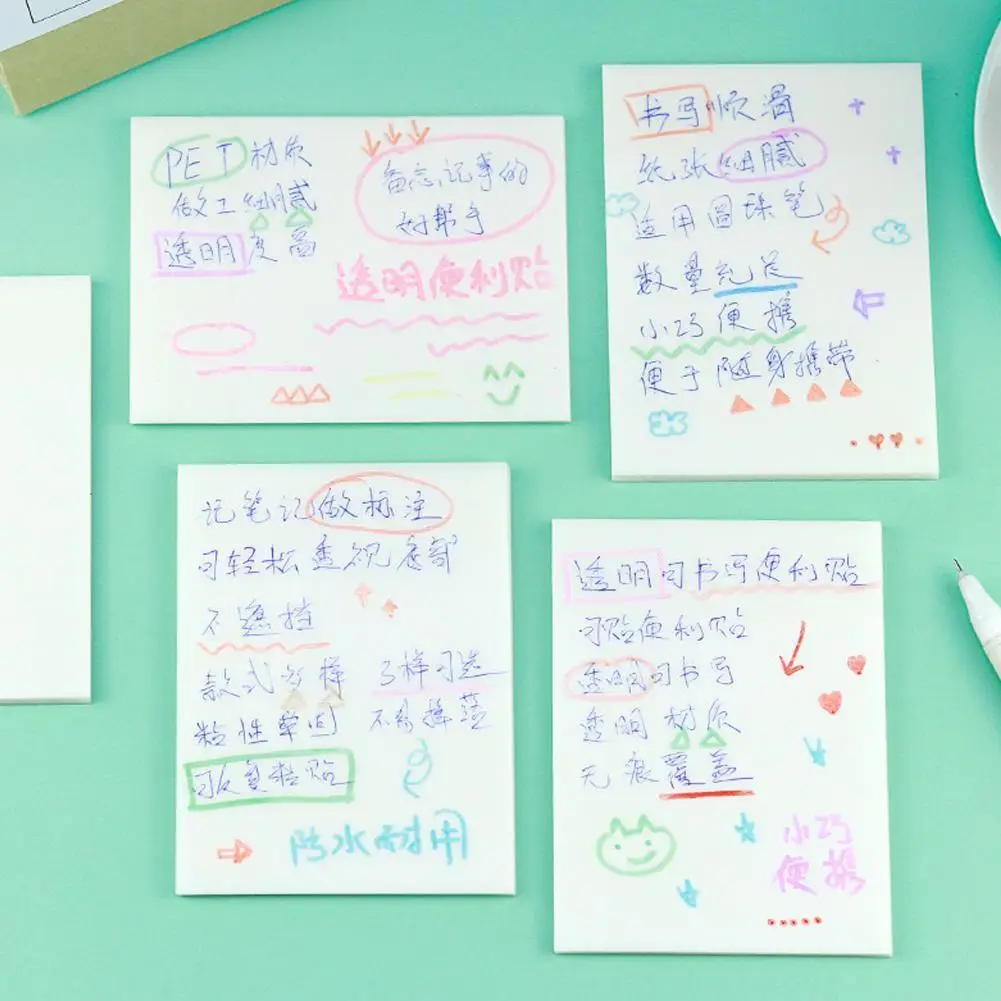 PET材质
做工细腻
透明度高
备忘,记事的
好帮手
透明便利贴
书写顺滑
纸张细腻
适用圆珠笔
数量充足
小巧便携
便于随身携带
记笔记做标注
可轻松透视底部
不遮挡
款式多样 多样可选
粘性牢固 不易掉落
可反复粘贴
防水耐用
透明可书写便利贴
可贴便利贴
透明可书写
透明材质
无痕覆盖
小巧
便携